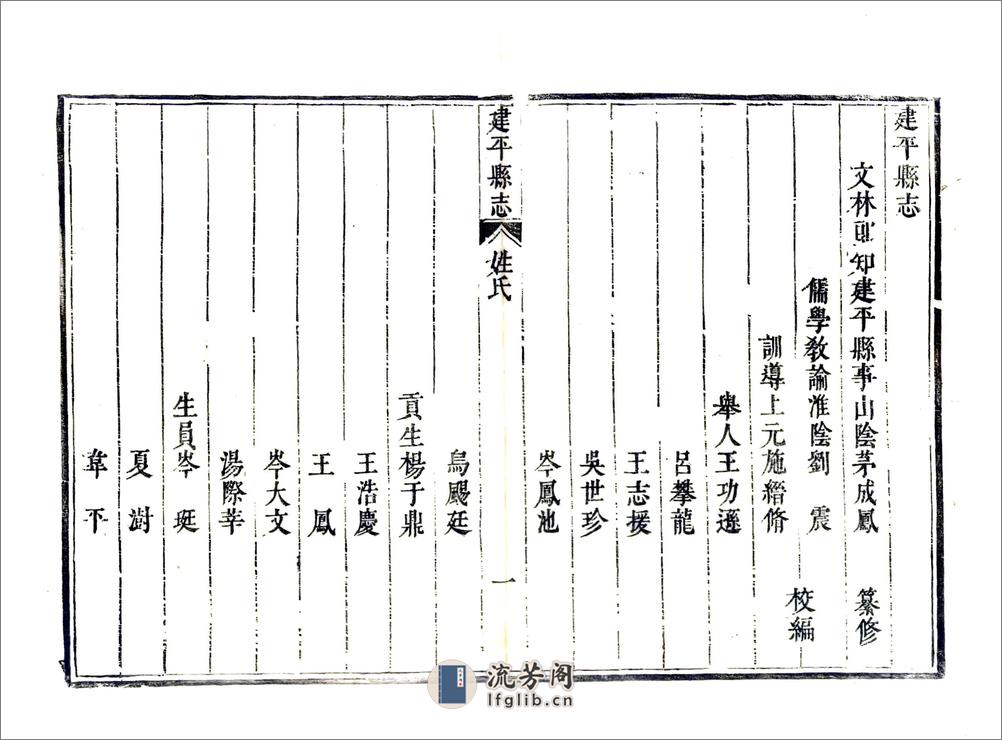 建平縣志
文林郎知建平縣事山陰茅成鳳 纂修
儒學教諭淮陰劉 震
訓導上元施縉脩 校編
舉人王功遜
呂攀龍
王志援
吳世珍
岑鳳池
建平縣志 姓氏 一
烏颺廷
貢生楊于鼎
王浩慶
王 鳳
岑大文
湯際莘
生員岑 珽
夏 澍
韋 平
流芳阁
lfglib.cn